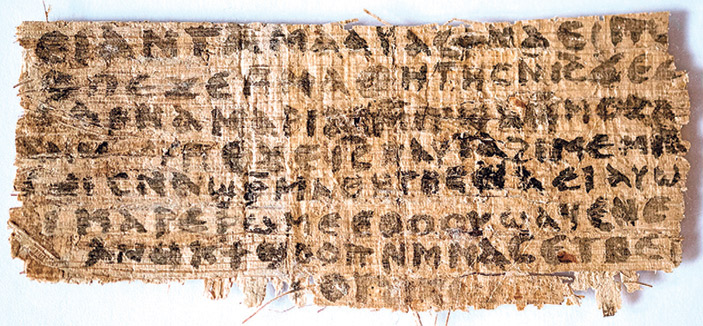 ⲉⲓ ⲁⲛ ⲧⲁⲙⲁⲁⲩ ⲁⲥϯ ⲛⲁⲉⲓ ⲡⲱ
ⲡⲉϫⲉ ⲙⲙⲁⲑⲏⲧⲏⲥ ⲛⲓ̅ⲥ̅ ϫⲉ ⲥ
ⲁⲣⲛⲁ ⲙⲁⲣⲓⲁⲙ ⲙⲡϣⲁ ⲙⲙⲟⲥ ⲁ
ⲡⲉϫⲉ ⲓ̅ⲥ̅ ⲛⲁⲩ ⲧⲁϩⲓⲙⲉ ⲙⲛ
ⲥⲛⲁϣⲣⲙⲁⲑⲏⲧⲏⲥ ⲛⲁⲉⲓ ⲁⲩⲱ
ⲙⲁⲣⲉⲣⲱⲙⲉ ⲉⲑⲟⲟⲩ ϣⲁϥⲉ ⲛⲉ
ⲁⲛⲟⲕ ϯϣⲟⲟⲡ ⲛⲙⲙⲁⲥ ⲉⲧⲃⲉ